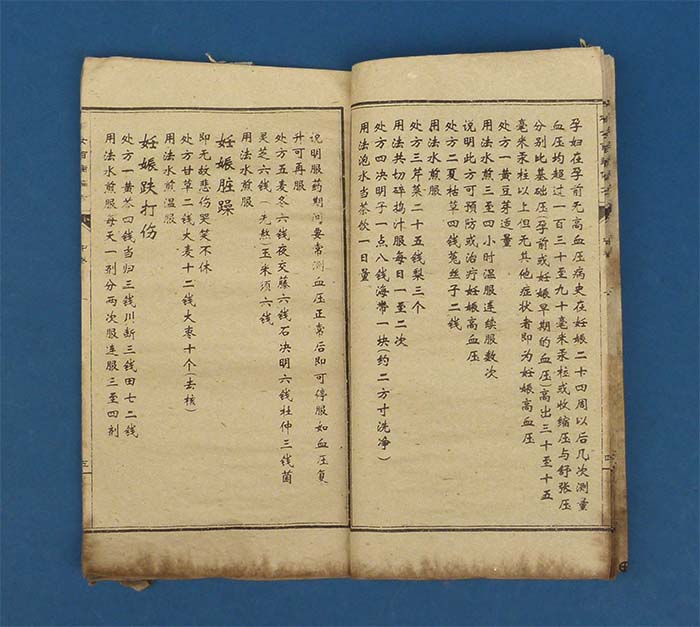 孕妇在孕前无高血压病史在妊娠二十四周以后几次测量
血压均超过一百三十至九十毫米汞柱或收缩压与舒张压
分别比基础压(孕前或妊娠早期的血压)高出三十至十五
毫米汞柱以上但无其他症状者即为妊娠高血压
处方一黄豆芽适量
用法水煎三至四小时温服连续服数次
说明此方可预防或治疗妊娠高血压
处方二夏枯草四钱菟丝子二钱
用法水煎服
处方三芹菜二十五钱梨三个
用法共切碎捣汁服每日一至二次
处方四决明子一点八钱海带一块(约二方寸洗净)
用法泡水当茶饮一日量
说明服药期间要常测血压正常后即可停服如血压复
升可再服
处方五麦冬六钱夜交藤六钱石决明六钱杜仲三钱菌
灵芝六钱(先煎)玉米须六钱
用法水煎服
妊娠脏躁
即无故悲伤哭笑不休
处方甘草二钱大麦十二钱大枣十个(去核)
用法水煎温服
妊娠跌打伤
处方一黄芩四钱当归三钱川断三钱田七二钱
用法水煎服每天一剂分两次服连服三至四剂